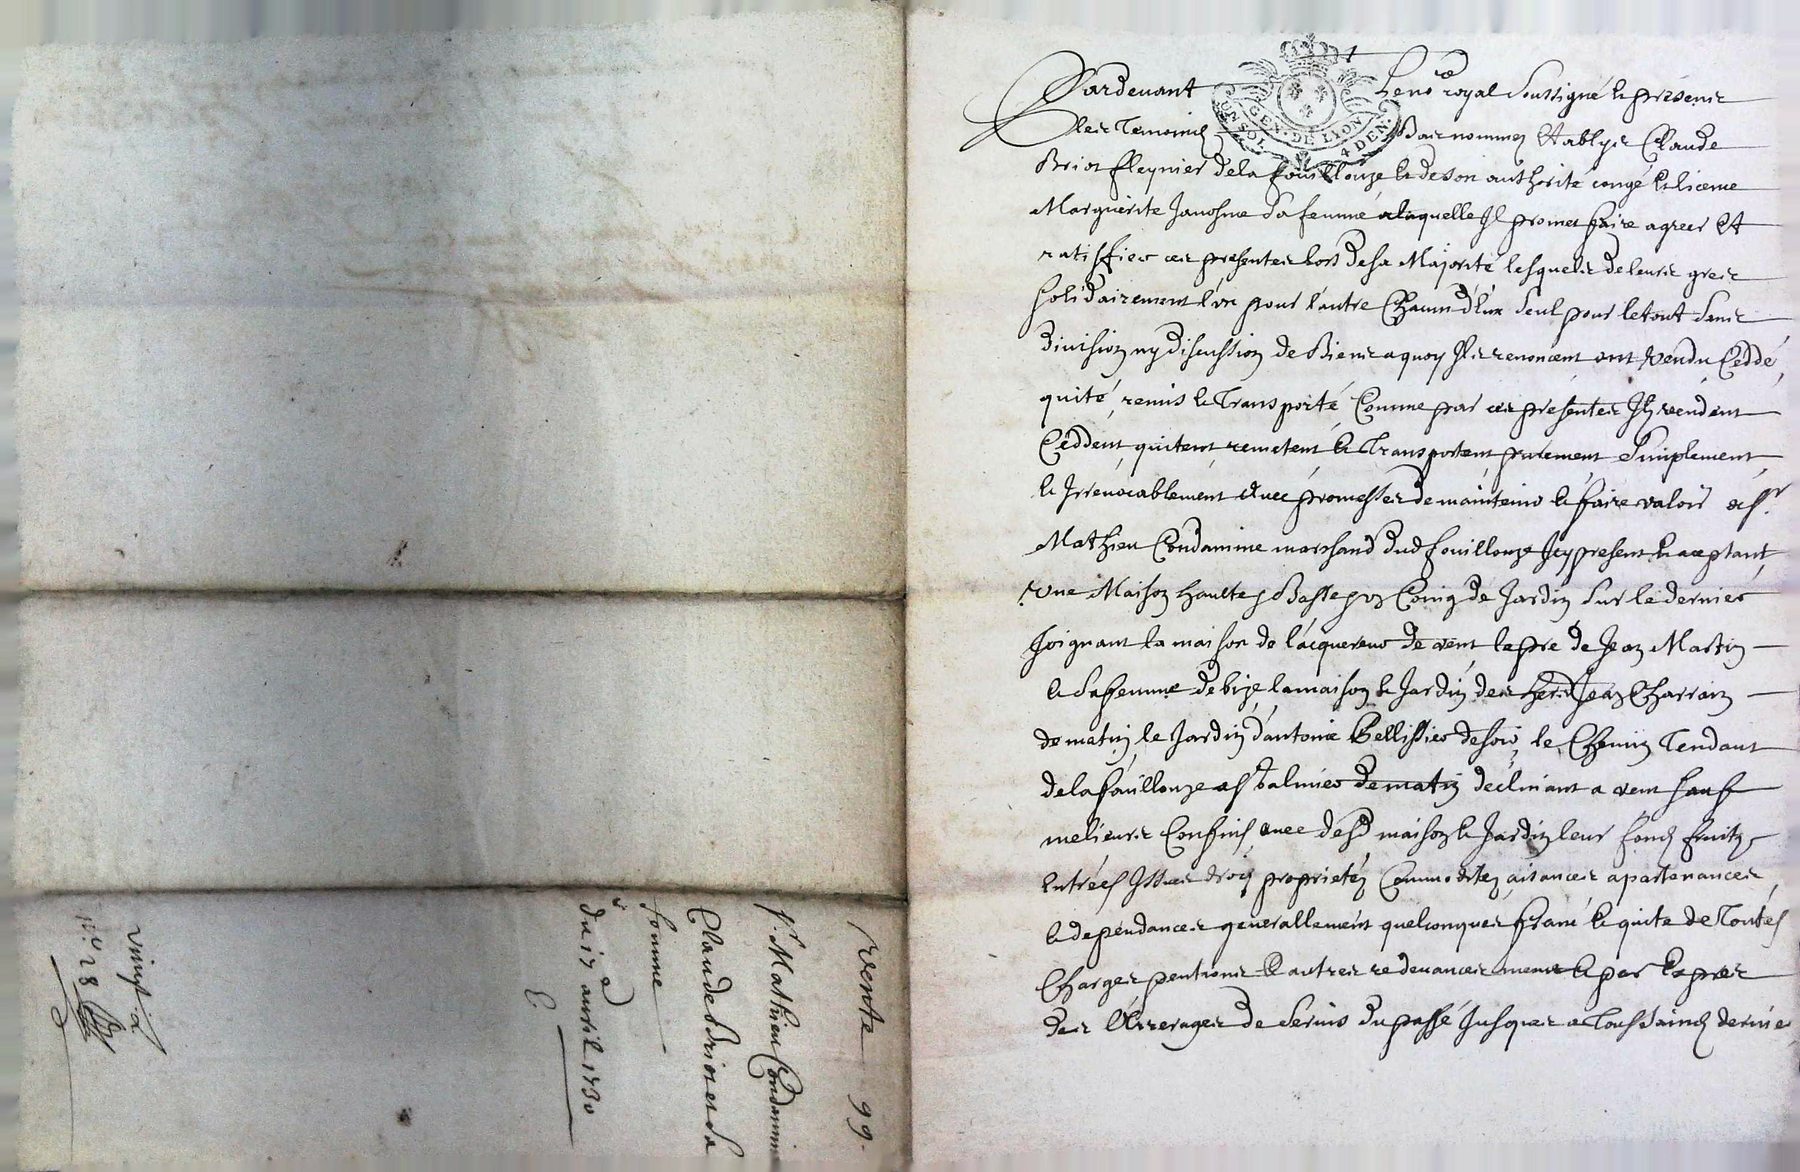 Pardevant Le no.re royal Soussigné & présens
Les Temoins Bas nommés Etablys Claude
Briot fleynier dela fouillouze & de son authorité congé & licence
Marguerite Janosne Sa femme alaquelle Il promet faire agreer Et
ratiffier ces presentes Lors de sa Majorité lesquels de leurs grés
Solidairement l'un pour l'autre Chacun d'Eux Seul pour le tout Sans
division ny discussion de Biens a quoy Ils renoncent ont Vendu Ceddé
quité remis & Transporté Comme par ces présentes Ils vendent
Ceddent quitent remetent & Transportent purement Simplement
& Irrevocablement avec promesses de maintenir & faire valoir a Sr.
Mathieu Condamine marchand dud fouillouze Icy present & aceptant
Une Maison haulte & Basse & un Coing de Jardin Sur le dernier
Joignant la maison de l'acquereur de vent le pré de Jean Martin
& Sa femme de bize la maison & Jardin des her.s Jean Charrain
de matin le Jardin d'antoine Pellissier de soir le Chemin Tendant
de la fouillouze a St Galmier de matin declinant a vent Sauf
melieurs Confins avec desd maison & Jardin leur fonds fruits
Entrées Issues droits proprietés Commodités aisances apartenances
& dependances generallement quelconques franc & quite de Toutes
Charges pentions & autres redevances meme & par Exprés
des Arrerages de Servis du passé Jusques a Toussaincts dernier
GEN. DE LION
UN SOL 4 DEN.
Vente 99.
Sr. Mathieu Condamine
Claude Briot et Sa
femme
du avril 1730
C.
vingt
n.o 28